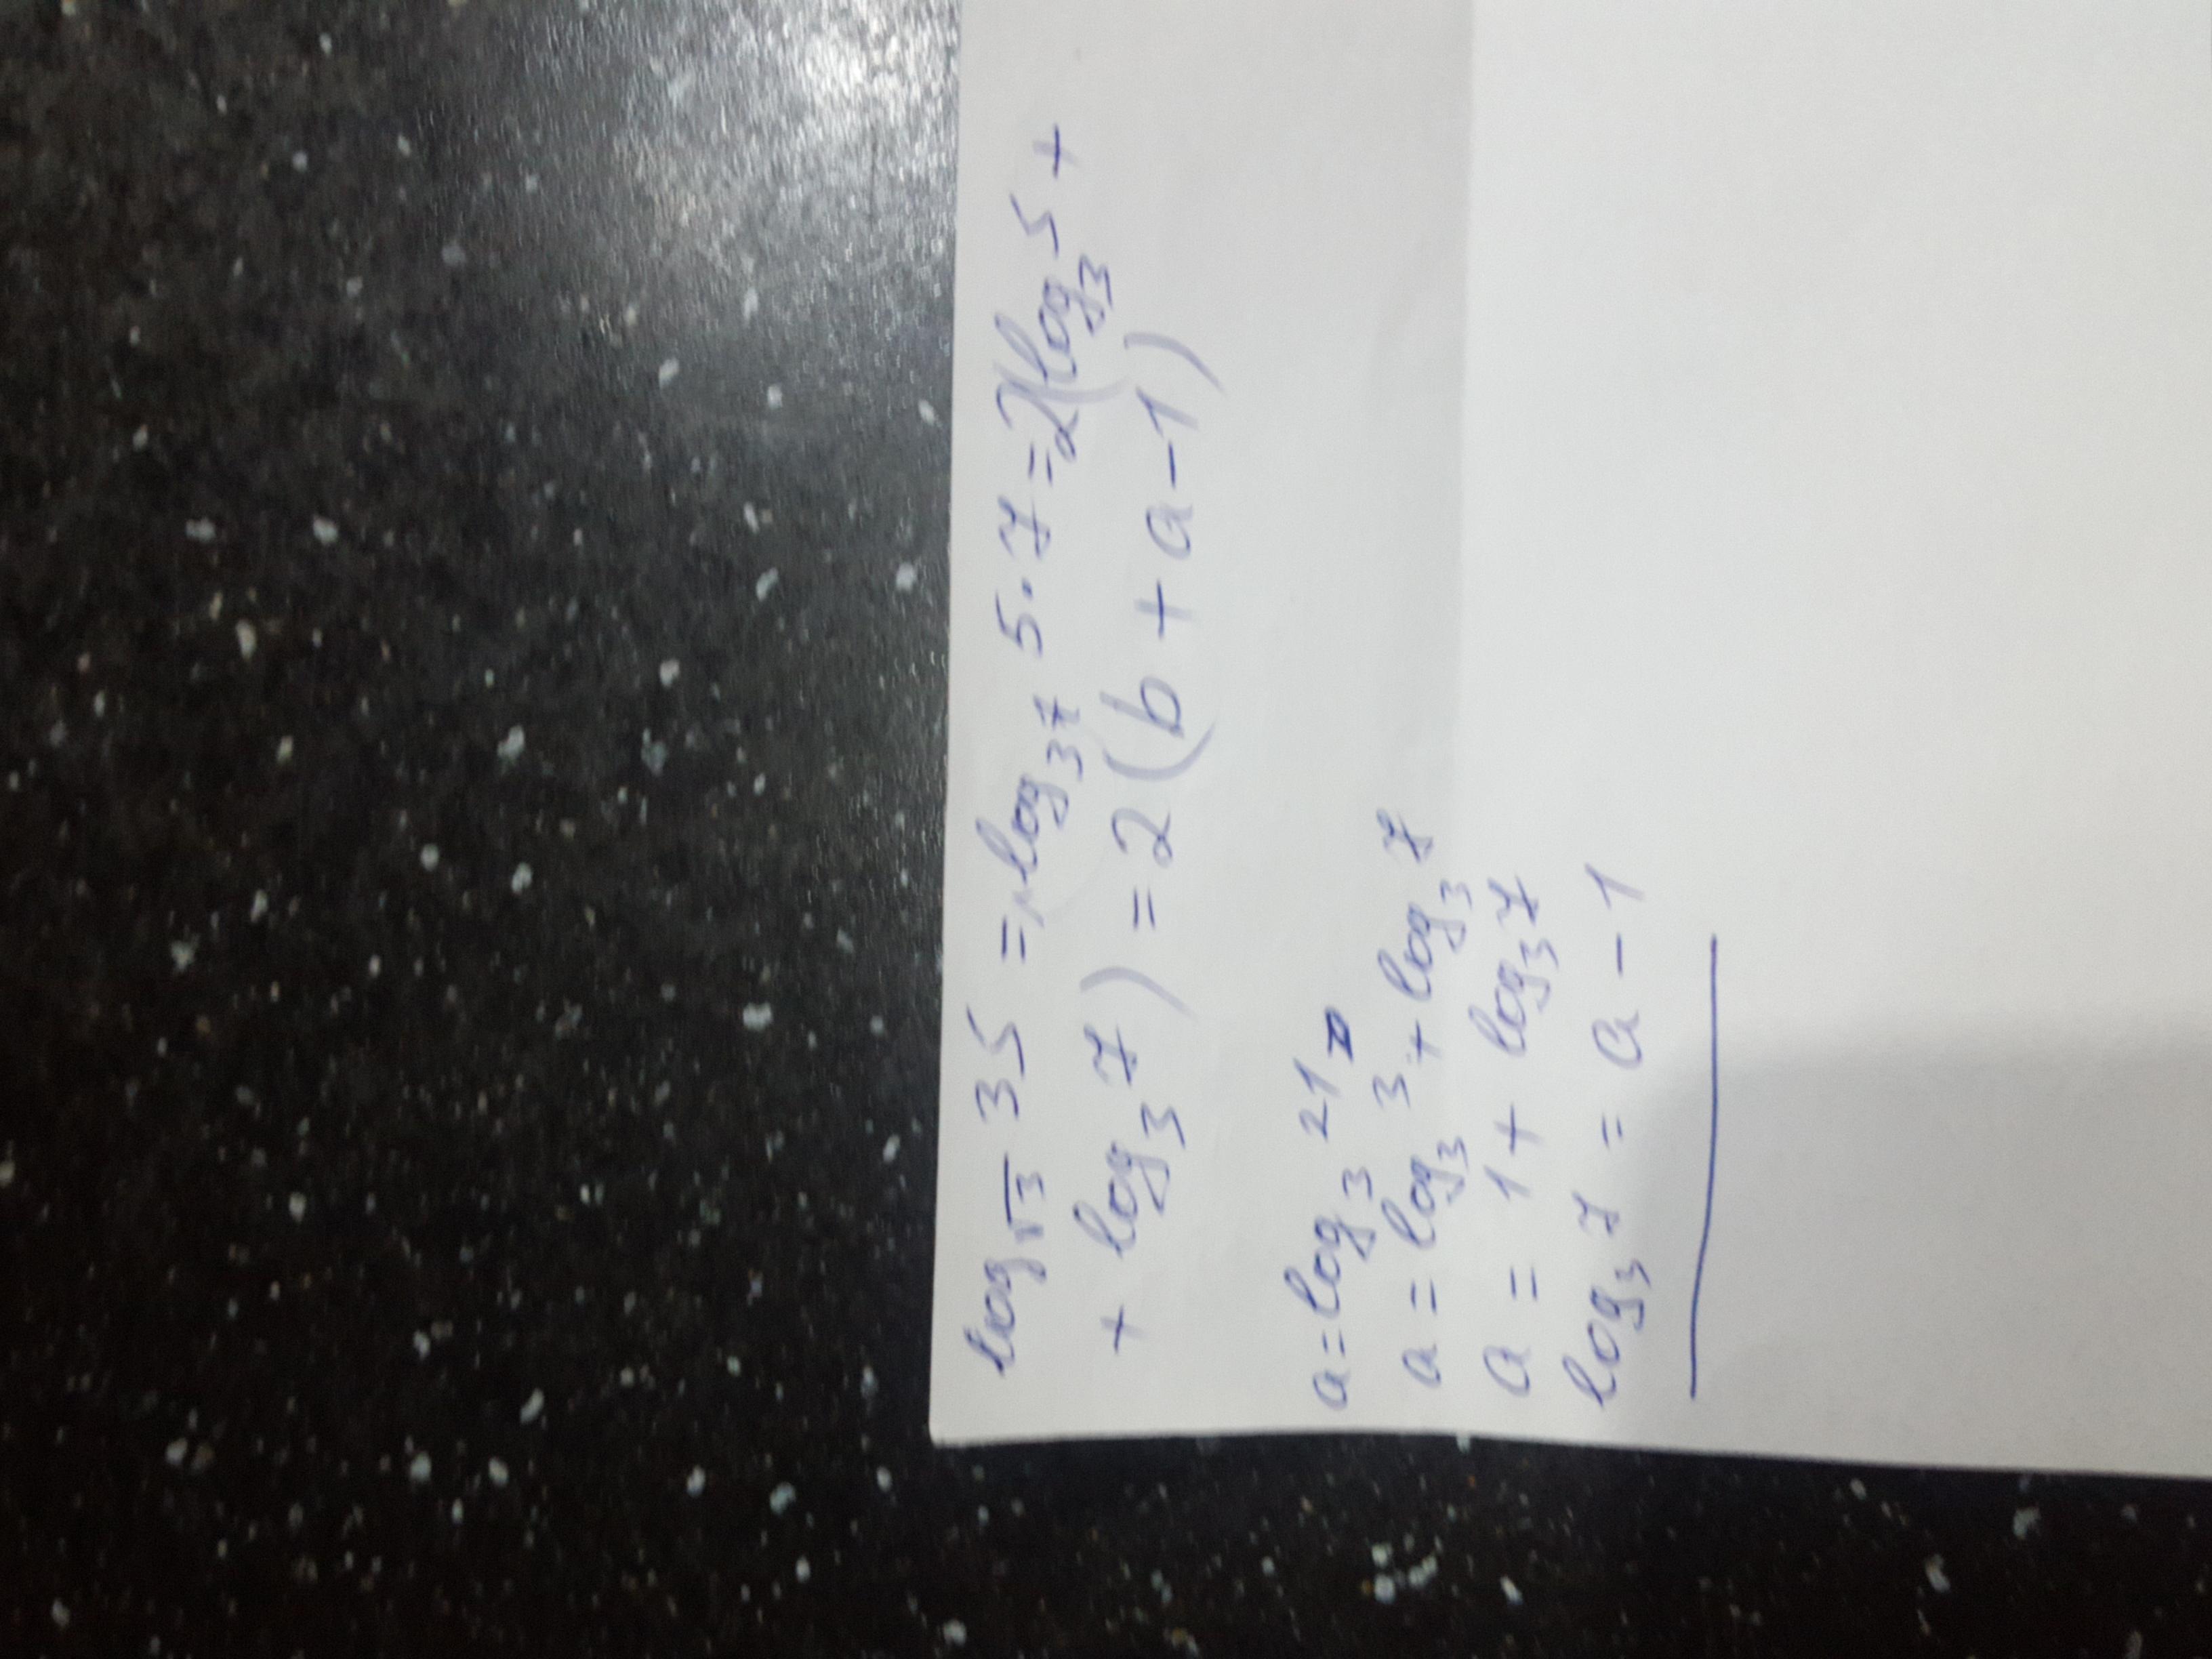 log√3 35 = log3^½ 5·7 = 2(log3 5 +
+ log3 7) = 2(b + a - 1)
a = log3 21
a = log3 3 + log3 7
a = 1 + log3 7
log3 7 = a - 1